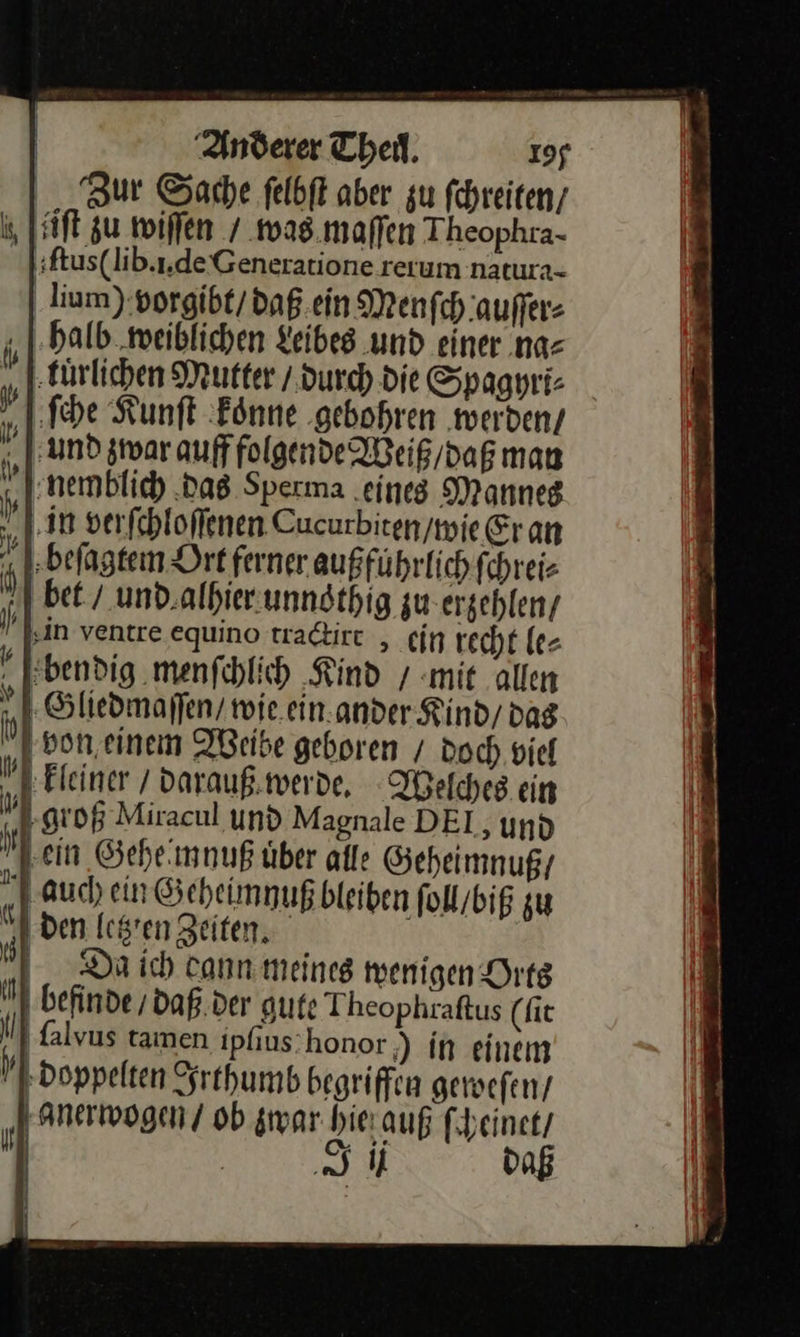 Anderer Theil. 195
Zur Sache ſelbſt aber zu ſchreiten/
iſt zu wiſſen / was maſſen Theophra-
ſtus(lib.1.de Generatione rerum natura-
lium) vorgibt/ daß ein Menſch auſſer⸗
halb weiblichen Leibes und einer na⸗
tuͤrlichen Mutter / durch die Spagyri⸗
ſche Kunſt koͤnne gebohren werden/
und zwar auff folgende Weiß/daß man
nemblich das Sperma eines Mannes
in verſchloſſenen Cucurbiten/wie Er an
beſagtem Ort ferner außfuͤhrlich ſchrei⸗
bet / und alhier unnoͤthig zu erzehlen/
in ventre equino tractirt , ein recht le⸗
bendig menſchlich Kind / mit allen
Gliedmaſſen/ wie ein ander Kind/ das
von einem Weibe geboren / doch viel
kleiner / darauß werde. Welches ein
groß Miracul und Magnale DEI, und
ein Geheimnuß uͤber alle Geheimnuß/
auch ein Geheimnuß bleiben ſoll/biß zu
den letzten Zeiten.
Da ich dann meines wenigen Orts
befinde / daß der gute Theophraſtus (ſit
ſalvus tamen ipſius honor) in einem
doppelten Irthumb begriffen geweſen/
anerwogen / ob zwar hierauß ſcheinet/
J ij daß